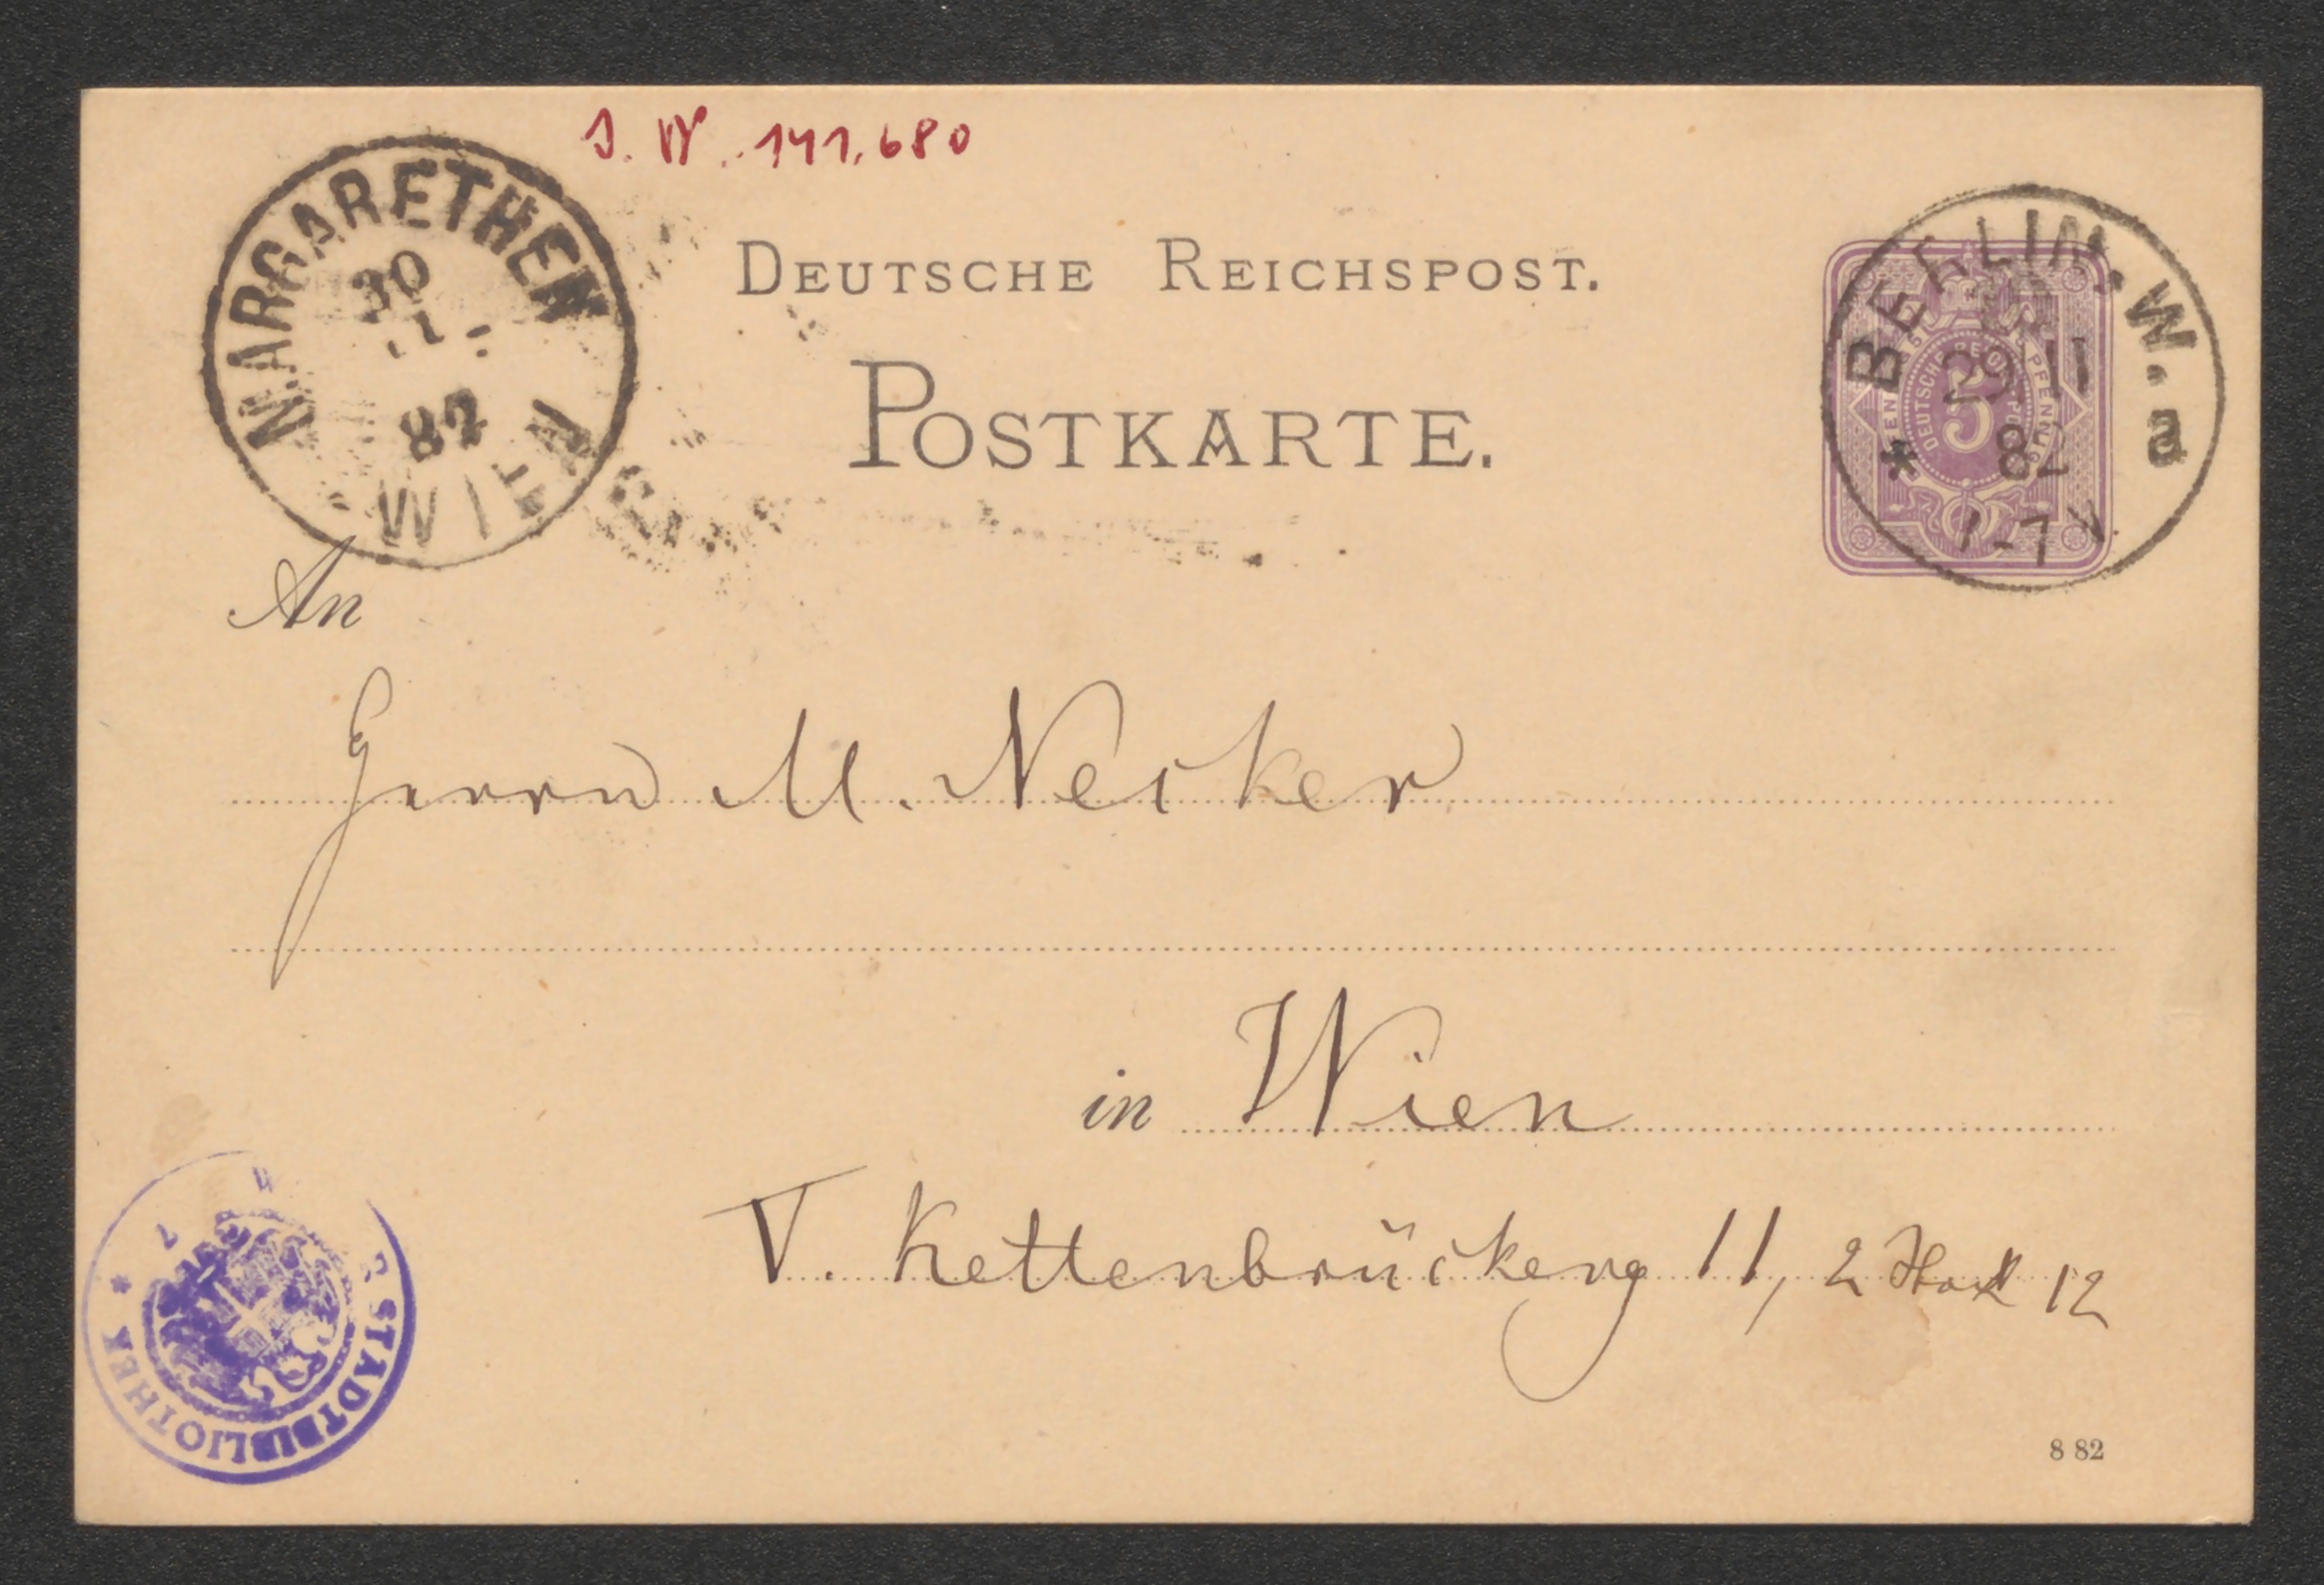 J. N. 141.680
N. MARGARETHEN
30
11
82
WIEN
DEUTSCHE REICHSPOST.
POSTKARTE.
BERLIN. W. a
29 11
82
DEUTSCHE REICHSPOST
FÜNF PFENNIG
5
An
Herrn M. Necker
in Wien
V. Kettenbrückeng 11, 2 Stock 12
STADTBIBLIOTHEK
8 82